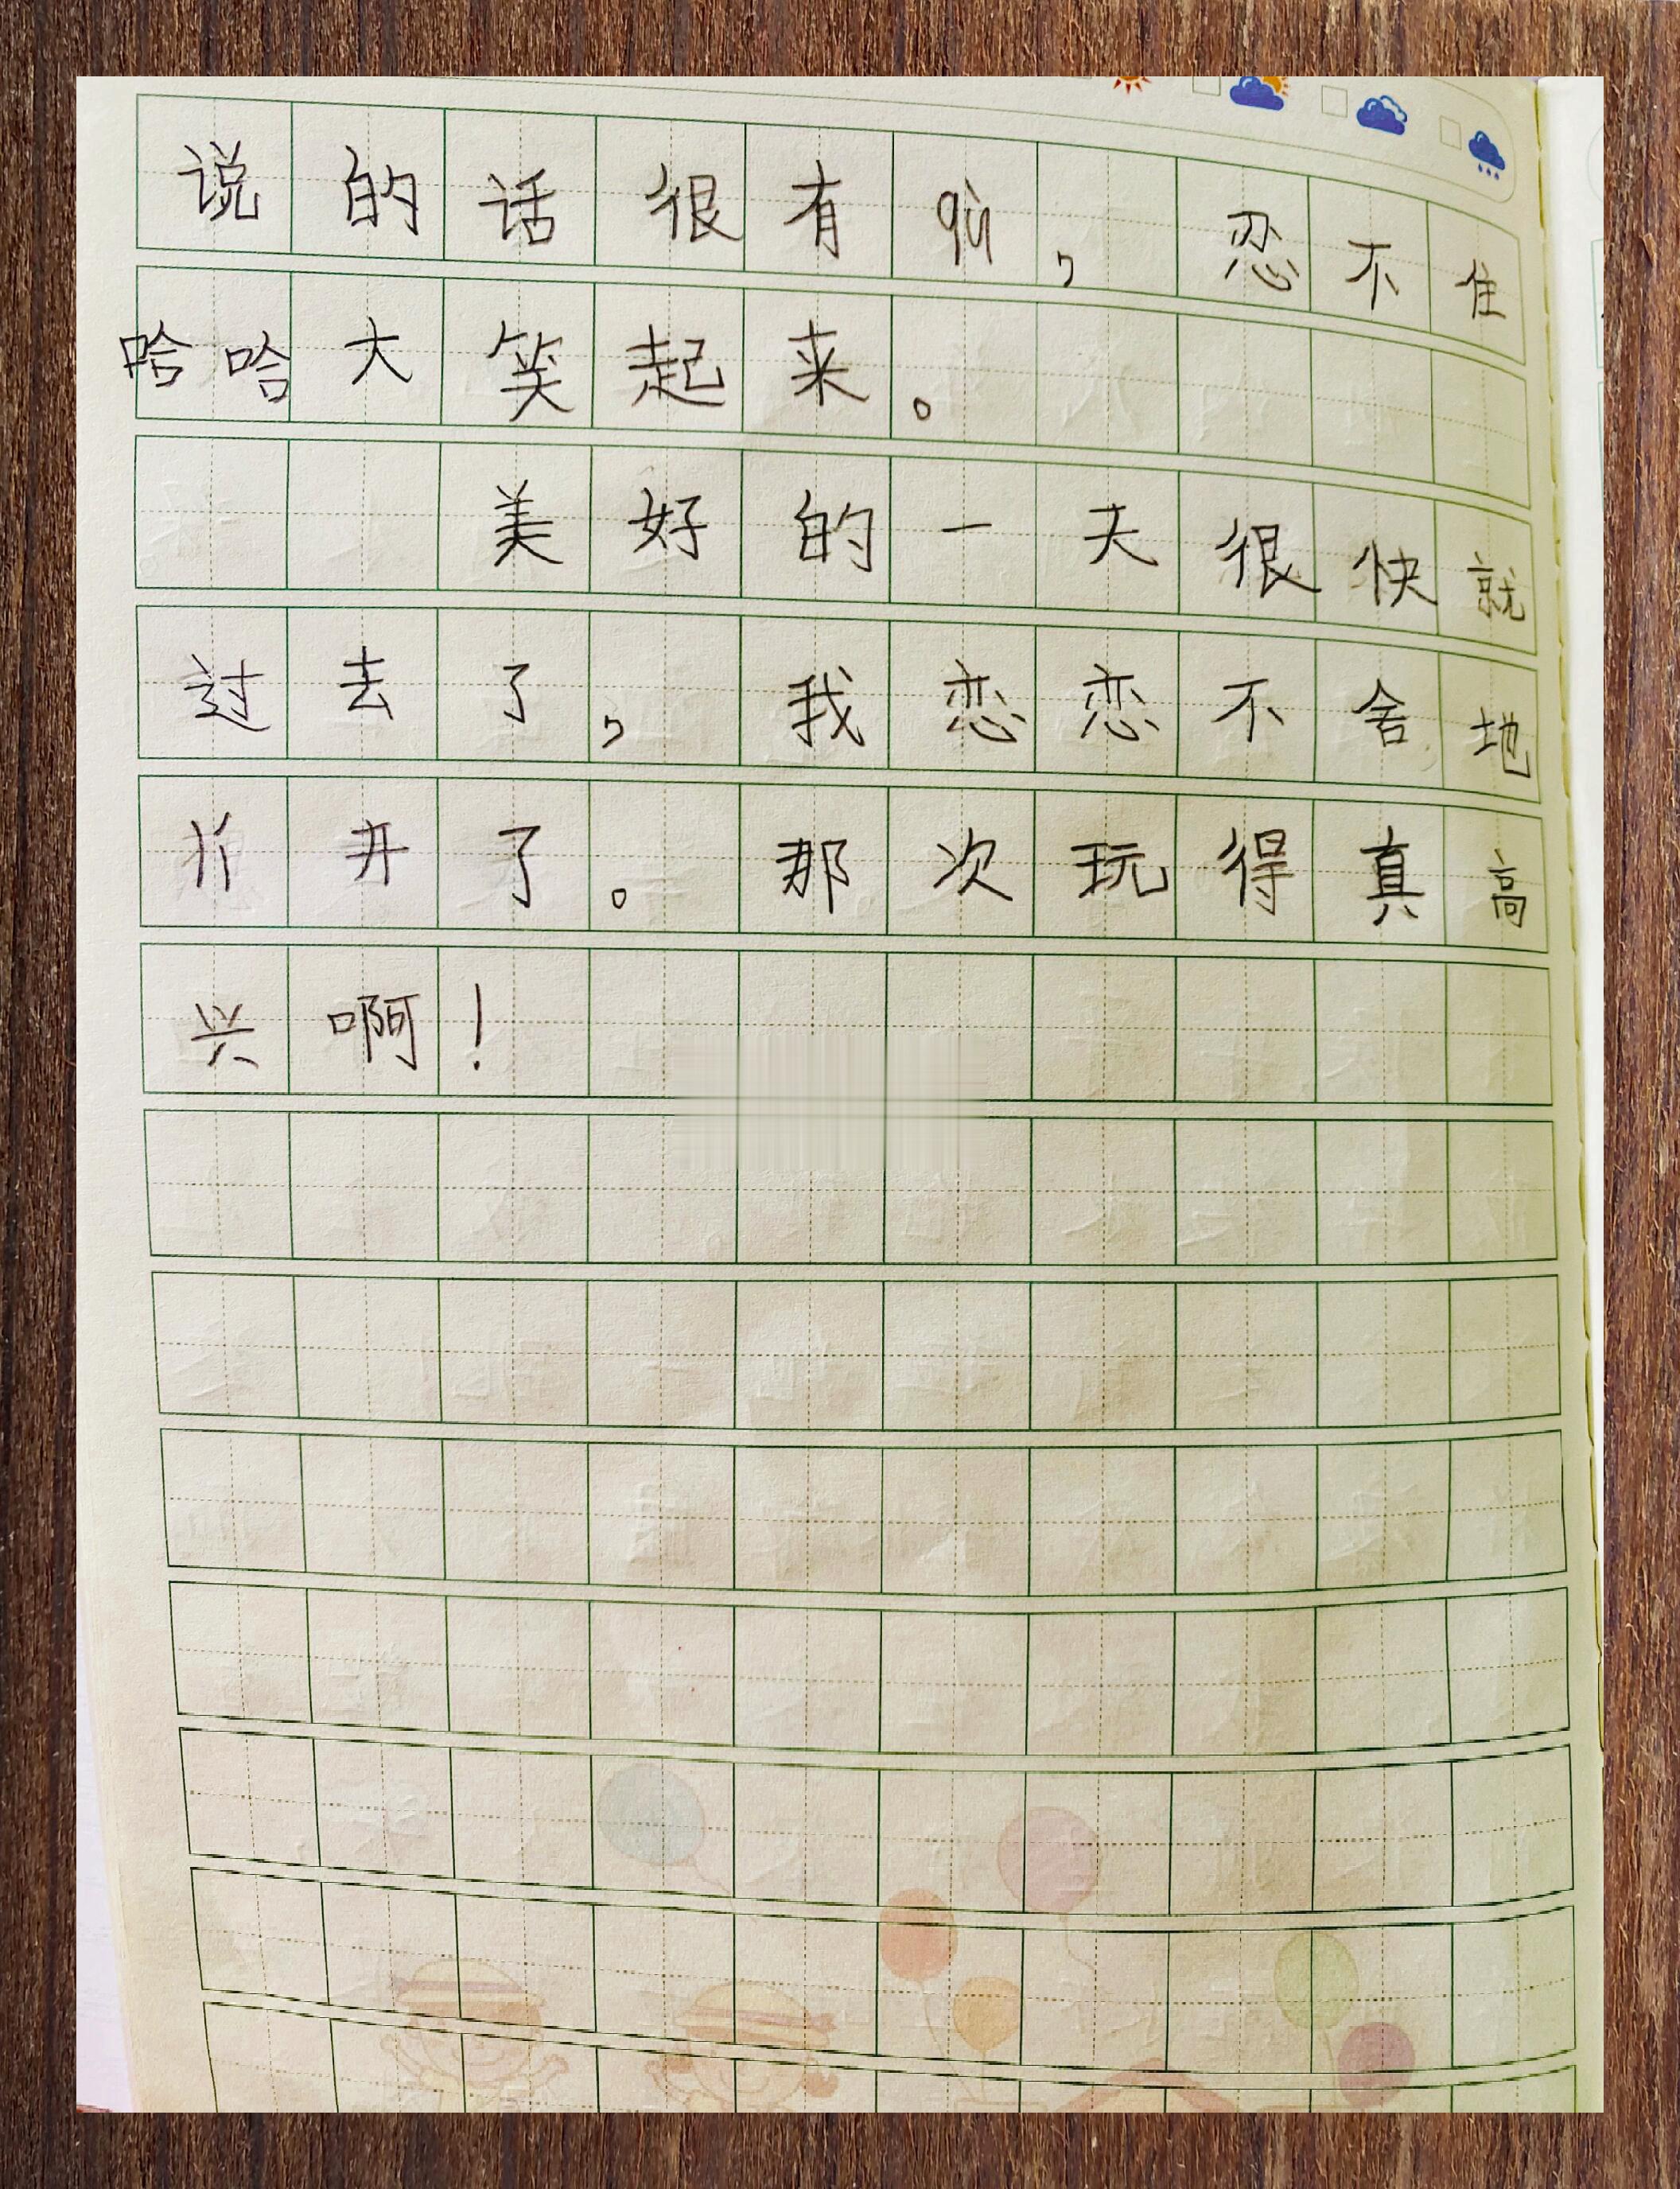 说的话很有qù，忍不住
哈哈大笑起来。
美好的一天很快就
过去了，我恋恋不舍地
开了。那次玩得真高
兴啊！